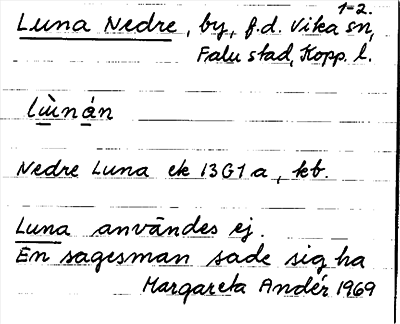 1-2.
Luna Nedre, by, f.d. Vika sn,
Falu stad, Kopp. l.
lùnán
Nedre Luna ek 13G1a, kb.
Luna användes ej.
En sagesman sade sig ha
Margareta Andér 1969